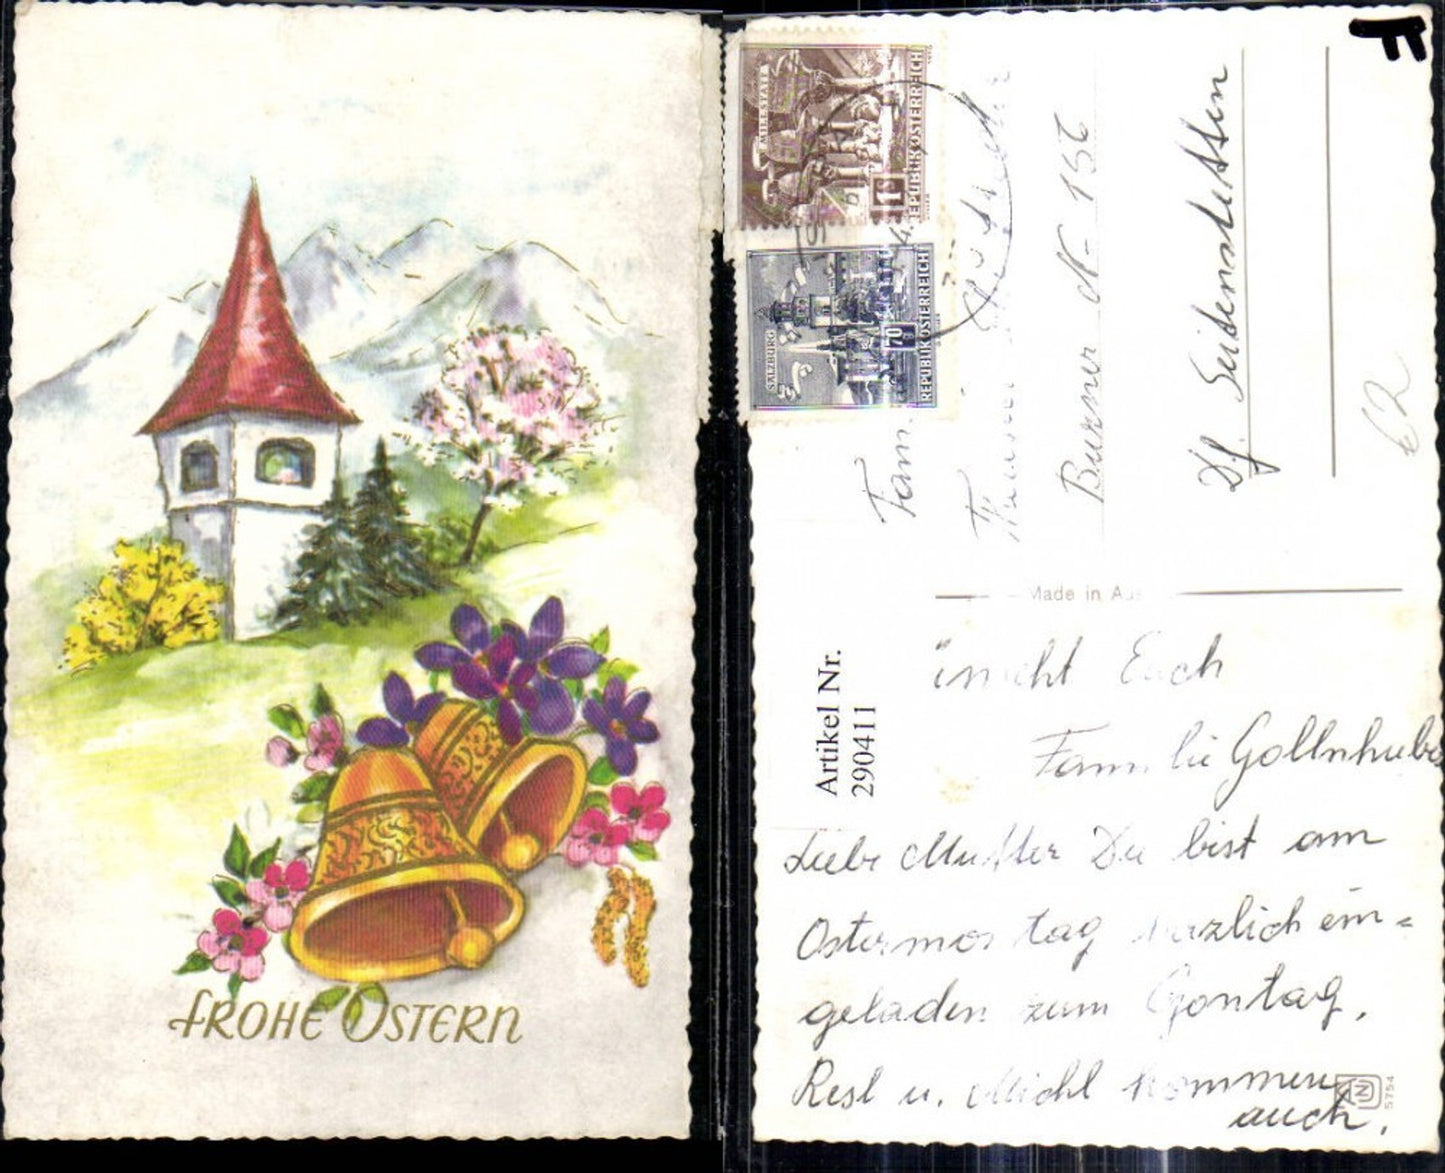 FROHE OSTERN
F
MILLSTATT
1
REPUBLIK ÖSTERREICH
SALZBURG
70
REPUBLIK ÖSTERREICH
Fam.
Buxner N- 156
Df. Seidenstetten
62
Made in Aus
Artikel Nr.
290411
Euch
Familie Gollnhuber
Liebe Mutter Du bist am
Ostermontag herzlich ein=
geladen zum
Resl u. Michl kommen
auch.
5754